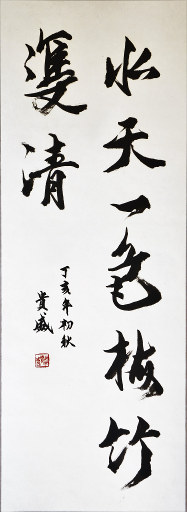 水天一色梅竹
雙清
丁亥年初秋
貴威